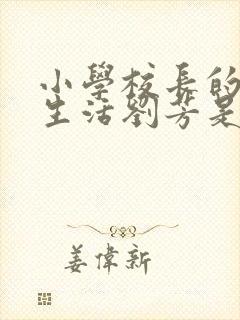 小學校長的
生活劉芳是
姜偉新